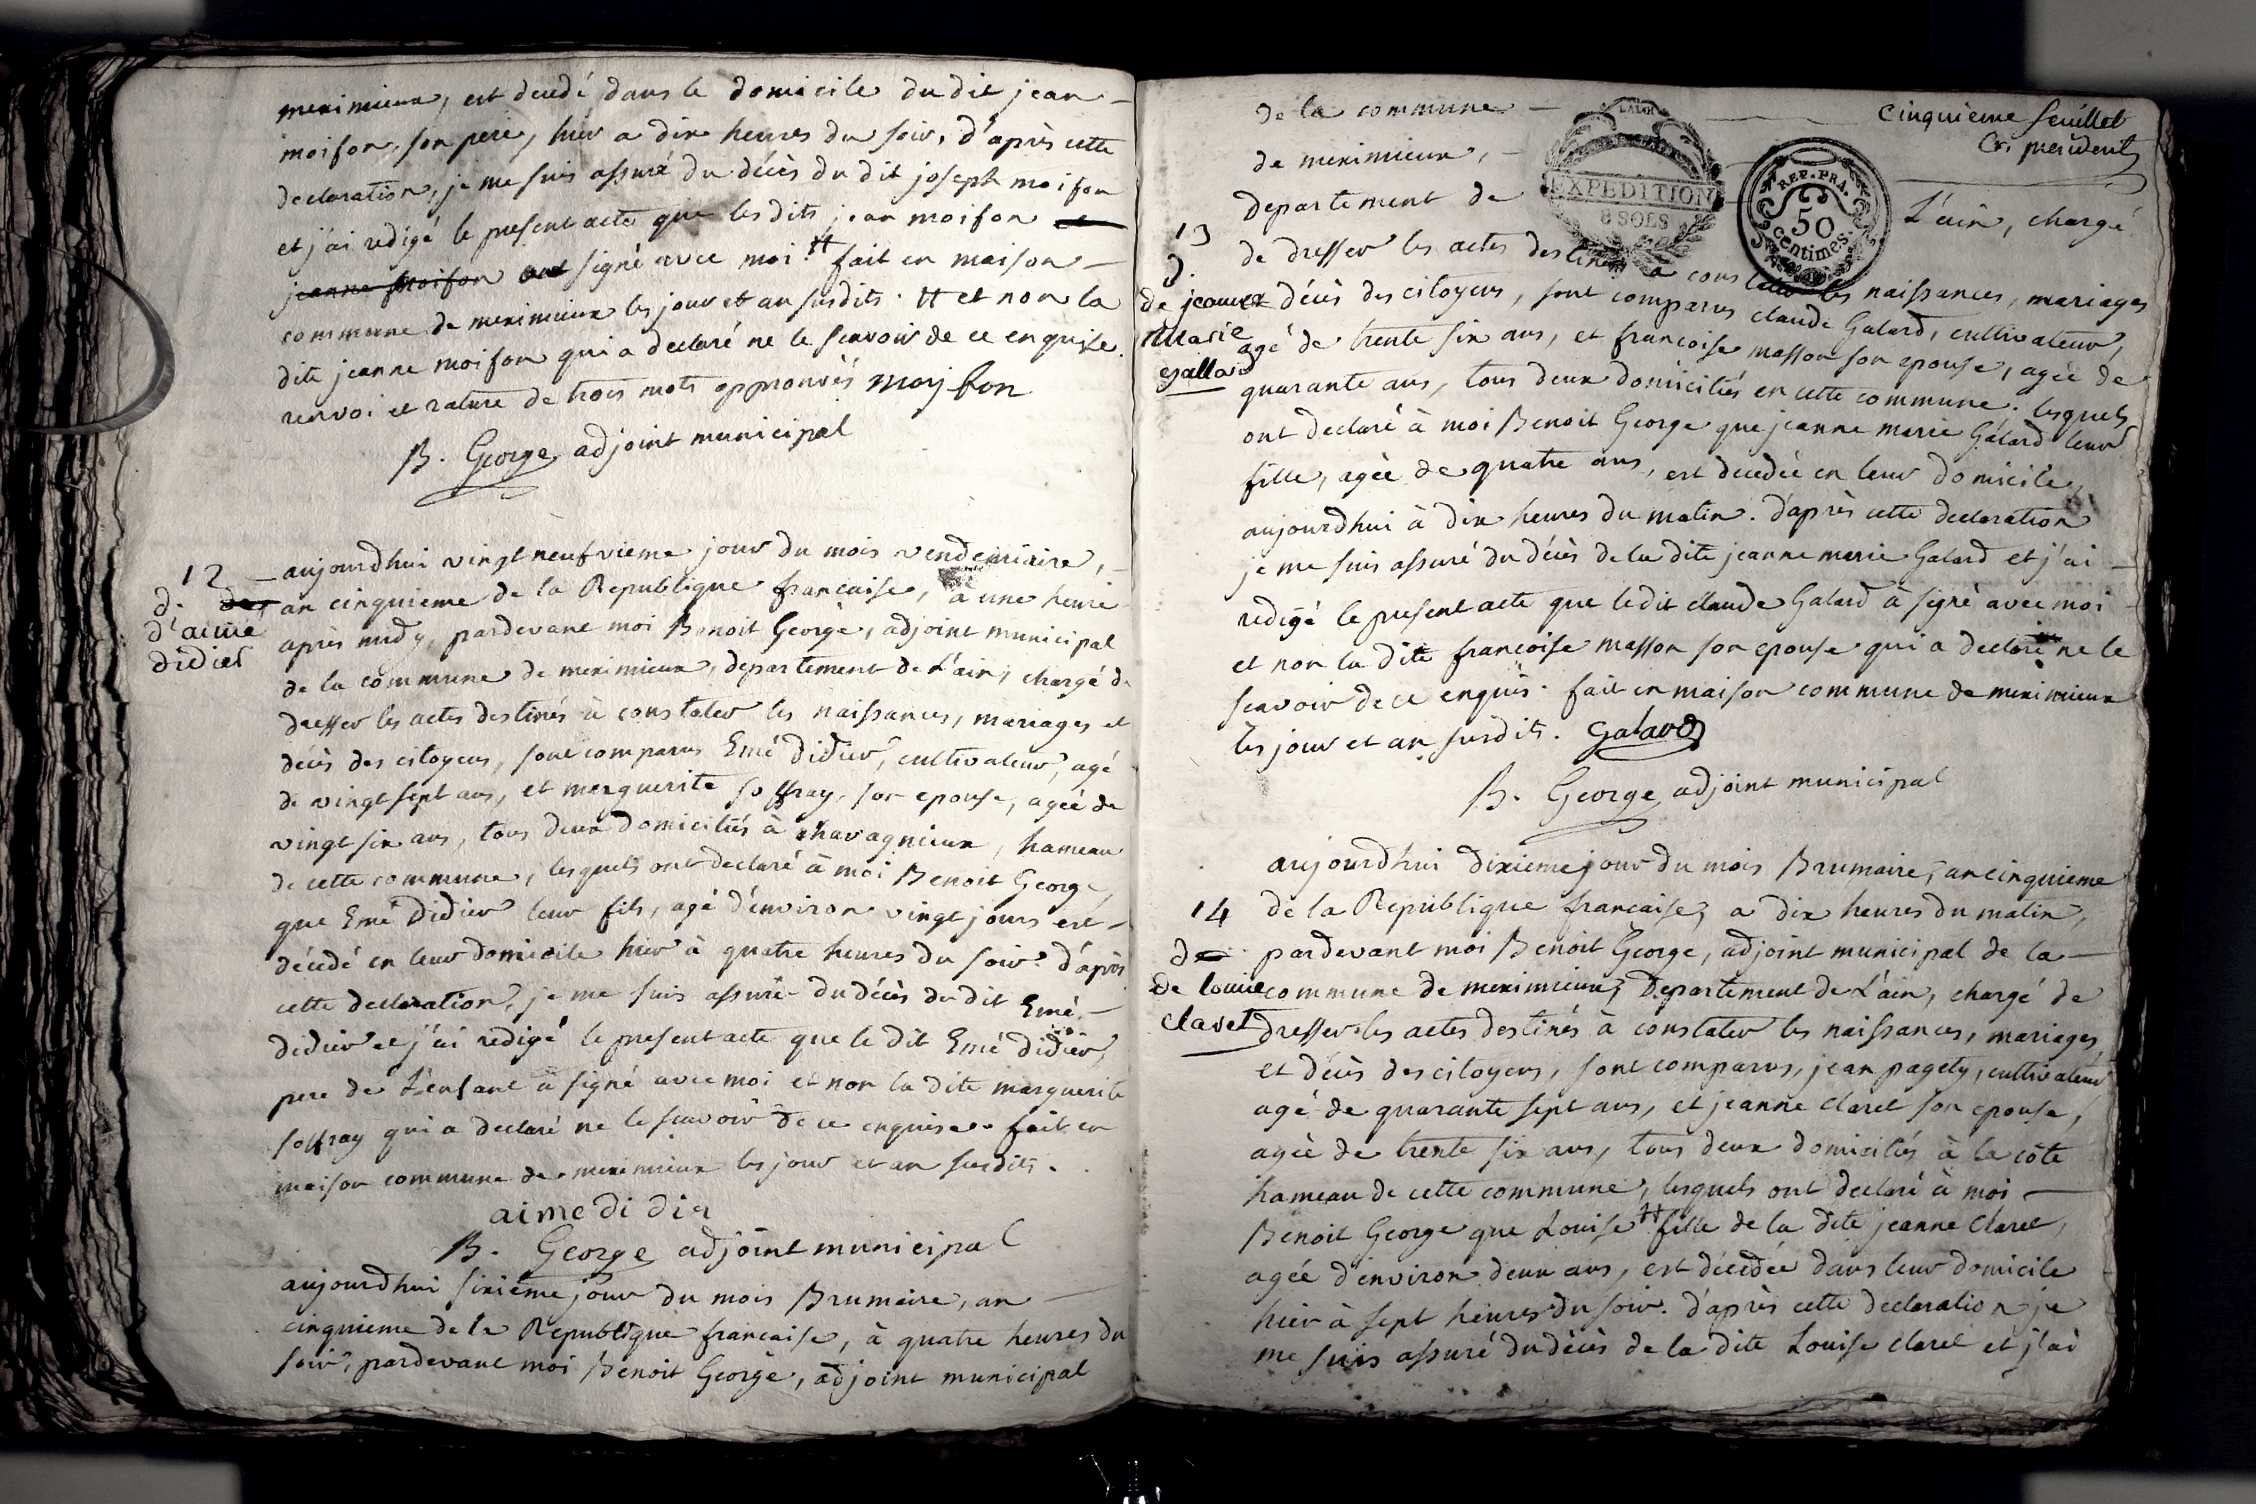 meximieux, est decedé dans le domicile du dit jean
moison, son pere, hier a dix heures du soir, d'après cette
declaration, je me suis assuré du décès du dit joseph moison
et j'ai redigé le present acte que les dits jean moison et
jeanne moison ont signé avec moi. # fait en maison
commune de meximieux les jour et an susdits. # et non la
dite jeanne moison qui a declaré ne le scavoir de ce enquise.
renvoi et rature de trois mots approuvés moyson
B. George adjoint municipal
12
d.
d'aimé
didier
aujourdhui vingt neufvieme jour du mois vendemiaire,
an cinquieme de la Republique francaise, à une heure
après midy, pardevant moi Benoit George, adjoint municipal
de la commune de meximieux, departement de L'ain, chargé de
dresser les actes destinés à constater les naissances, mariages et
décès des citoyens, sont comparus Emé didier, cultivateur, agé
de vingt sept ans, et marguerite soffray, son epouse, agée de
vingt six ans, tous deux domiciliés à chavagnieux, hameau
de cette commune, lesquels ont declaré à moi Benoit George,
que Emé Didier leur fils, agé d'environ vingt jours est
décédé en leur domicile hier à quatre heures du soir. d'après
cette declaration, je me suis assuré du décès du dit Emé
didier et j'ai redigé le present acte que le dit Emé didier,
pere de L'enfant a signé avec moi et non la dite marguerite
soffray qui a declaré ne le scavoir de ce enquise. fait en
maison commune de meximieux les jour et an susdits.
aime di dir
B. George adjoint municipal
aujourdhui sixieme jour du mois Brumaire, an
cinquieme de la Republique francaise, à quatre heures du
soir, pardevant moi Benoit George, adjoint municipal
cinquieme feuillet
president
de la commune
de meximieux,
EXPEDITION
8 SOLS
REP. FRA.
50
centimes.
departement de L'ain, chargé
13
d.
de jeanne
Marie
gallard
de dresser les actes destinés a constater les naissances, mariages
et décès des citoyens, sont comparus claude Galard, cultivateur,
agé de trente six ans, et francoise masson son epouse, agée de
quarante ans, tous deux domiciliés en cette commune. lesquels
ont declaré à moi Benoit George que jeanne marie Galard leur
fille, agée de quatre ans, est decedée en leur domicile,
aujourdhui à dix heures du matin. d'après cette declaration
je me suis assuré du décès de la dite jeanne marie Galard et j'ai
redigé le present acte que ledit claude Galard à signé avec moi
et non la dite francoise masson son epouse qui a declaré ne le
scavoir de ce enquis. fait en maison commune de meximieux
les jour et an susdits. Galard
B. George adjoint municipal
14
de louise
claret
aujourdhui dixieme jour du mois Brumaire, an cinquieme
de la Republique francaise, a dix heures du matin,
pardevant moi Benoit George, adjoint municipal de la
commune de meximieux, Departement de L'ain, chargé de
dresser les actes destinés à constater les naissances, mariages
et décès des citoyens, sont comparus, jean pagety, cultivateur
agé de quarante sept ans, et jeanne claret son epouse,
agée de trente six ans, tous deux domiciliés à la côte
hameau de cette commune, lesquels ont declaré à moi
Benoit George que Louise # fille de la dite jeanne claret,
agée d'environ deux ans, est décédée dans leur domicile
hier à sept heures du soir. d'après cette declaration je
me suis assuré du décès de la dite Louise claret et j'ai